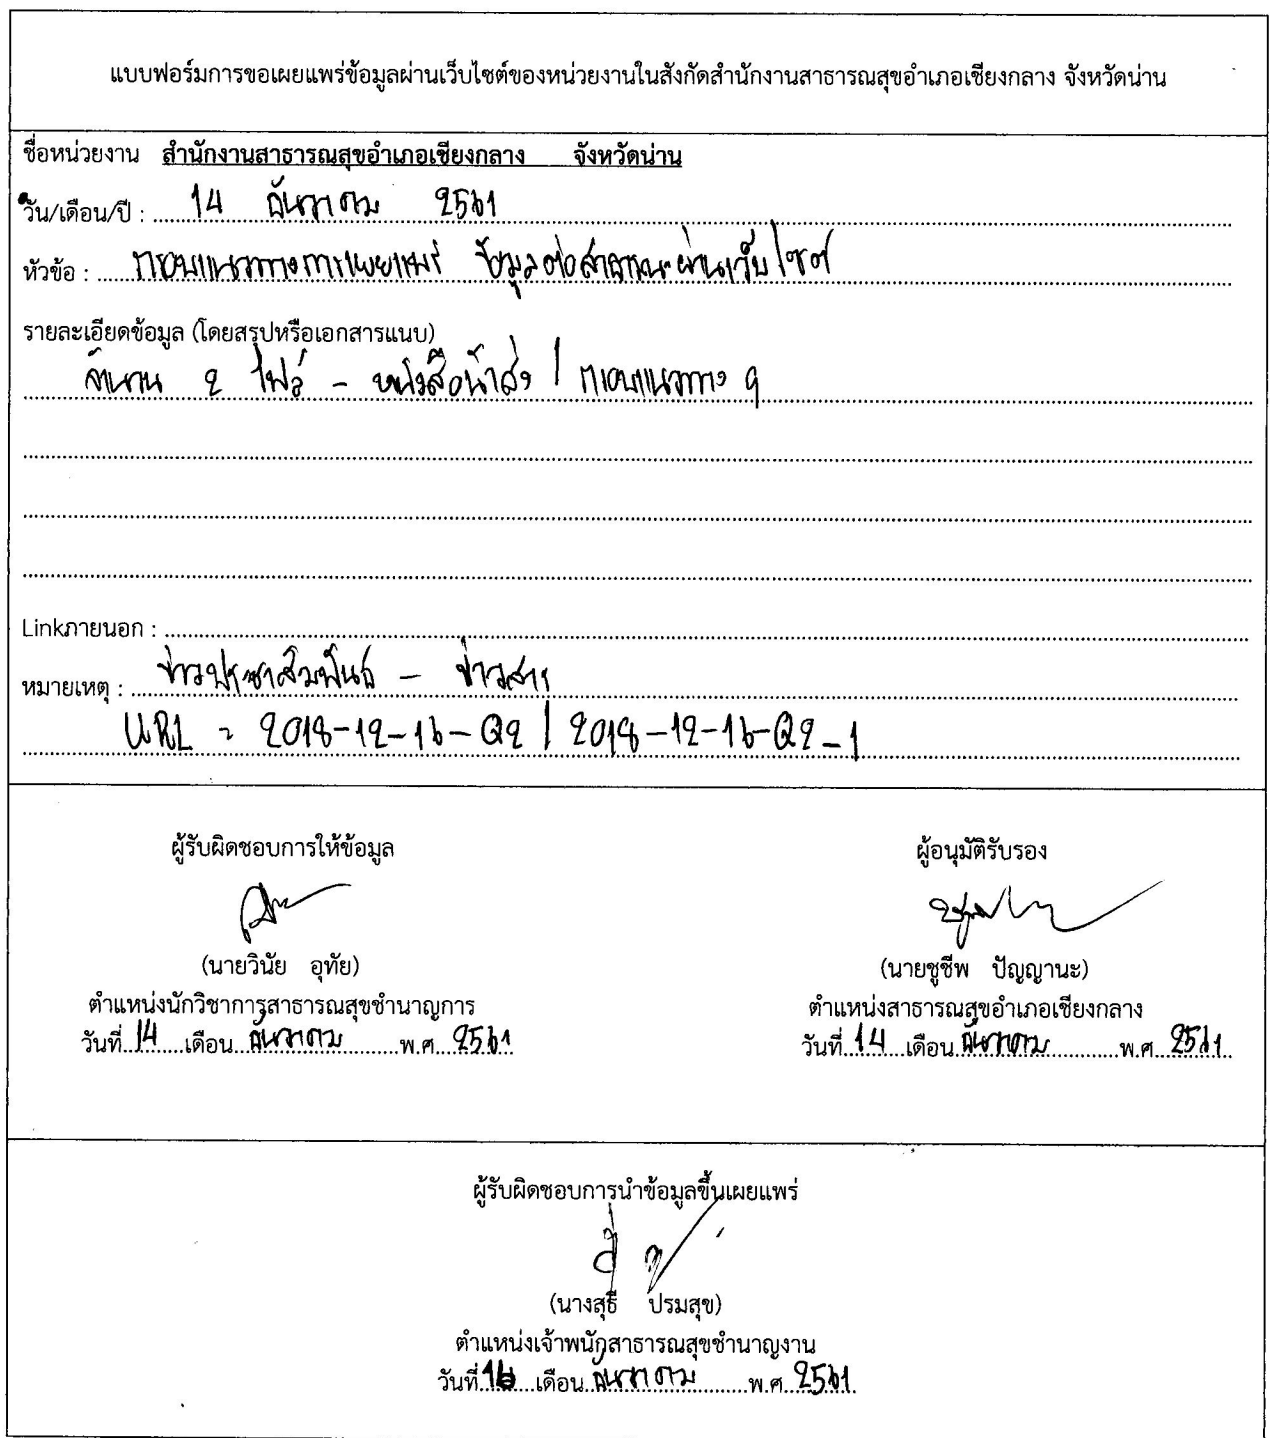 แบบฟอร์มการขอเผยแพร่ข้อมูลผ่านเว็บไซต์ของหน่วยงานในสังกัดสำนักงานสาธารณสุขอำเภอเชียงกลาง จังหวัดน่าน
ชื่อหน่วยงาน สำนักงานสาธารณสุขอำเภอเชียงกลาง จังหวัดน่าน
วัน/เดือน/ปี : 14 ธันวาคม 2561
หัวข้อ : กรอบแนวทางการเผยแพร่ ข้อมูลต่อสาธารณะผ่านเว็บไซต์
รายละเอียดข้อมูล (โดยสรุปหรือเอกสารแนบ)
จำนวน 2 ไฟล์ - หนังสือนำส่ง / กรอบแนวทาง ฯ
Linkภายนอก :
หมายเหตุ : ข่าวประชาสัมพันธ์ - ข่าวสาร
URL = 2018-12-16-Q2 / 2018-12-16-Q2-1
ผู้รับผิดชอบการให้ข้อมูล
(นายวินัย อุทัย)
ตำแหน่งนักวิชาการสาธารณสุขชำนาญการ
วันที่ 14 เดือน ธันวาคม พ.ศ. 2561
ผู้อนุมัติรับรอง
(นายชูชีพ ปัญญานะ)
ตำแหน่งสาธารณสุขอำเภอเชียงกลาง
วันที่ 14 เดือน ธันวาคม พ.ศ. 2561
ผู้รับผิดชอบการนำข้อมูลขึ้นเผยแพร่
(นางสุธี ปรมสุข)
ตำแหน่งเจ้าพนักสาธารณสุขชำนาญงาน
วันที่ 16 เดือน ธันวาคม พ.ศ. 2561